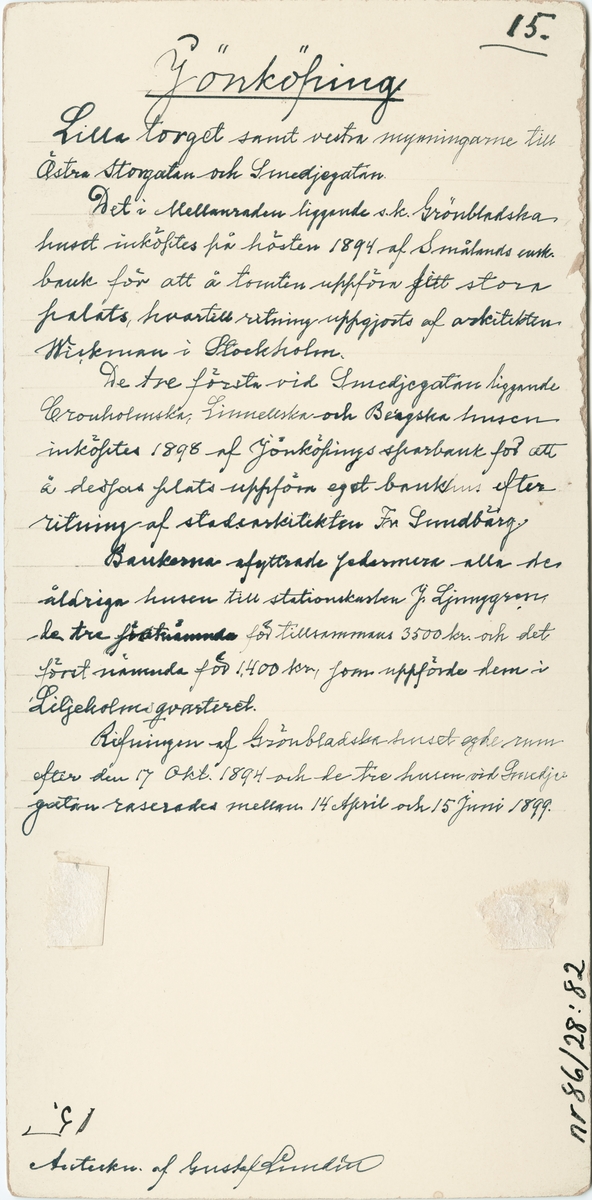 15.
Jönköping.
Lilla torget samt vestra mynningarne till
Östra Storgatan och Smedjegatan.
Det i Mellanraden liggande s.k. Grönbladska
huset inköptes på hösten 1894 af Smålands ensk.
bank för att å tomten uppföra sitt stora
palats, hvartill ritning uppgjorts af arkitekten
Wickman i Stockholm.
De tre första vid Smedjegatan liggande
Cronholmska, Linnellska och Bergska husen
inköptes 1898 af Jönköpings sparbank för att
å dessas plats uppföra eget bankhus efter
ritning af stadsarkitekten Fr Sundbärg.
Bankerna afyttrade sedermera alla de
åldriga husen till stationskarlen J. Ljunggren,
de tre förstnämnda för tillsammans 3500 kr. och det
först nämnda för 1,400 kr., som uppförde dem i
Liljeholmsqvarteret.
Rifningen af Grönbladska huset egde rum
efter den 17 Okt. 1894 och de tre husen vid Smedje
gatan raserades mellan 14 April och 15 Juni 1899.
nr 86/28:82
15.
Anteckn. af Gustaf Lundin